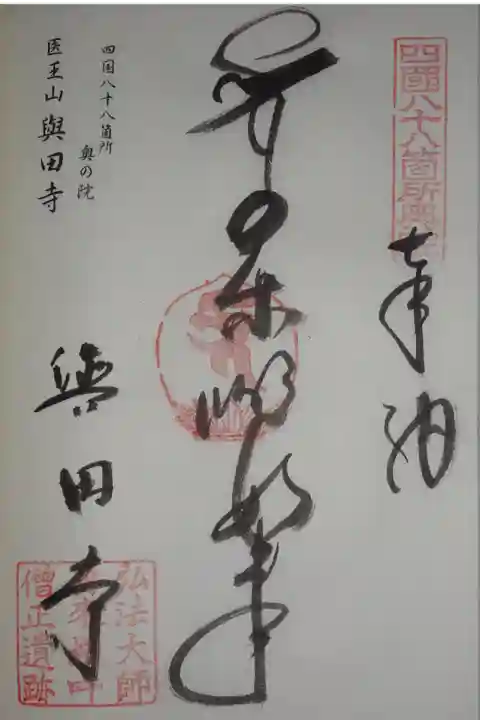 四國八十八箇所奥
奉納
薬師如来
四国八十八箇所
奥の院
医王山與田寺
與田寺
弘法大師
僧正遺跡